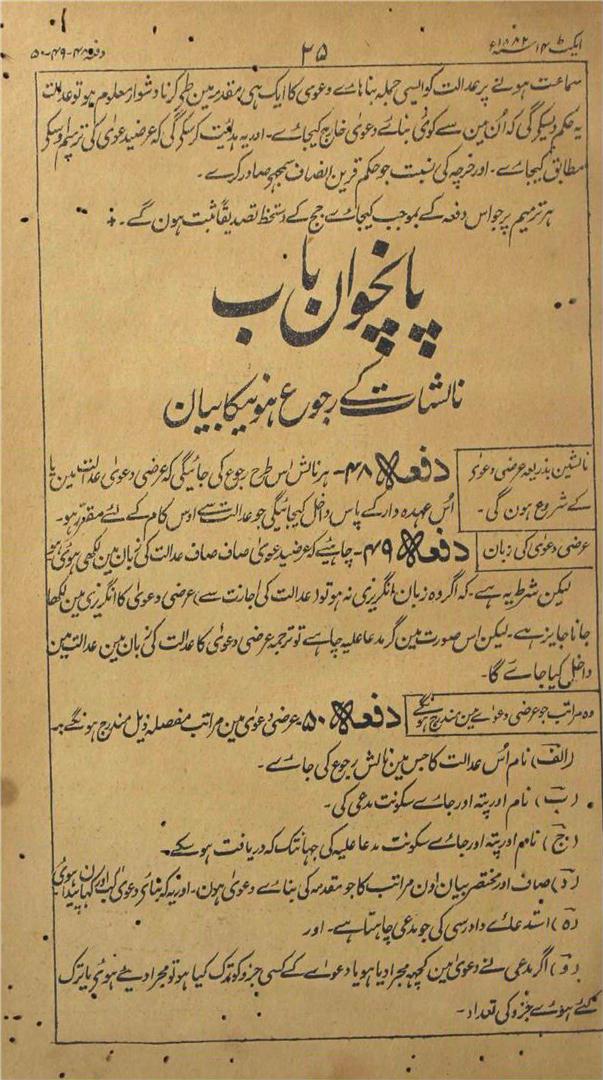 ایکٹ ۱۴ سنہ ۱۸۸۲ع
۲۵
دفعہ ۴۸-۴۹-۵۰
سماعت ہونے پر عدالت کو ایسی جملہ بناہاے دعوی کا ایک ہی مقدمہ مین طے کرنا دشوار معلوم ہو تو عدالت
یہ حکم دیسکے گی کہ اُن مین سے کوئی بنائے دعوی خارج کیجاے۔ اور یہ ہدایت کرسکے گی کہ عرضیدعوی کی ترمیم اوسکے
مطابق کیجاے۔ اور خرچہ کی نسبت جو حکم قرین انصاف سمجھے صادر کرے۔
ہر ترمیم پر جو اس دفعہ کے بموجب کیجاے جج کے دستخط تصدیقاً ثبت ہون گے۔
پانچوان باب
نالشات کے رجوع ہونیکا بیان
نالشین بذریعہ عرضی دعوی
کے شروع ہون گی۔
دفعہ ۴۸۔ ہر نالش اس طرح رجوع کی جائیگی کہ عرضی دعوی عدالت مین یا
اُس عہدہ دار کے پاس داخل کیجائیگی جو عدالت سے اوس کام کے لئے مقرر ہو۔
عرضی دعوی کی زبان
دفعہ ۴۹۔ چاہیے کہ عرضیدعوی صاف صاف عدالت کی زبان مین لکھی ہوئی ہو
لیکن شرط یہ ہے۔ کہ اگر وہ زبان انگریزی نہ ہو تو (عدالت کی اجازت سے) عرضی دعوی کا انگریزی مین لکھا
جانا جایز ہے۔ لیکن اس صورت مین گر مدعا علیہ چاہے تو ترجمہ عرضی دعوی کا عدالت کی زبان مین عدالت مین
داخل کیا جاے گا۔
وہ مراتب جو عرضی دعوے مین مندرج ہونگے
دفعہ ۵۰۔ عرضی دعوی مین مراتب مفصلہ ذیل مندرج ہونگے۔
(الف) نام اُس عدالت کا جس مین نالش رجوع کی جاے۔
(ب) نام اور پتہ اور جاے سکونت مدعی کی۔
(ج) نام اور پتہ اور جاے سکونت مدعا علیہ کی جہانتک کہ دریافت ہوسکے۔
(د) صاف اور مختصر بیان اون مراتب کا جو مقدمہ کی بناے دعوی ہون۔ اور یہ کہ بناے دعوی کب اور کہان پیدا ہوئی
(ہ) استدعاے دادرسی کی جو مدعی چاہتا ہے۔ اور
(و) اگر مدعی نے دعوی مین کچہہ مجرا دیا ہو یا دعوے کے کسی جزو کو ترک کیا ہو تو مجرا دیئے ہوئے یا ترک
کئے ہوے جزو کی تعداد۔